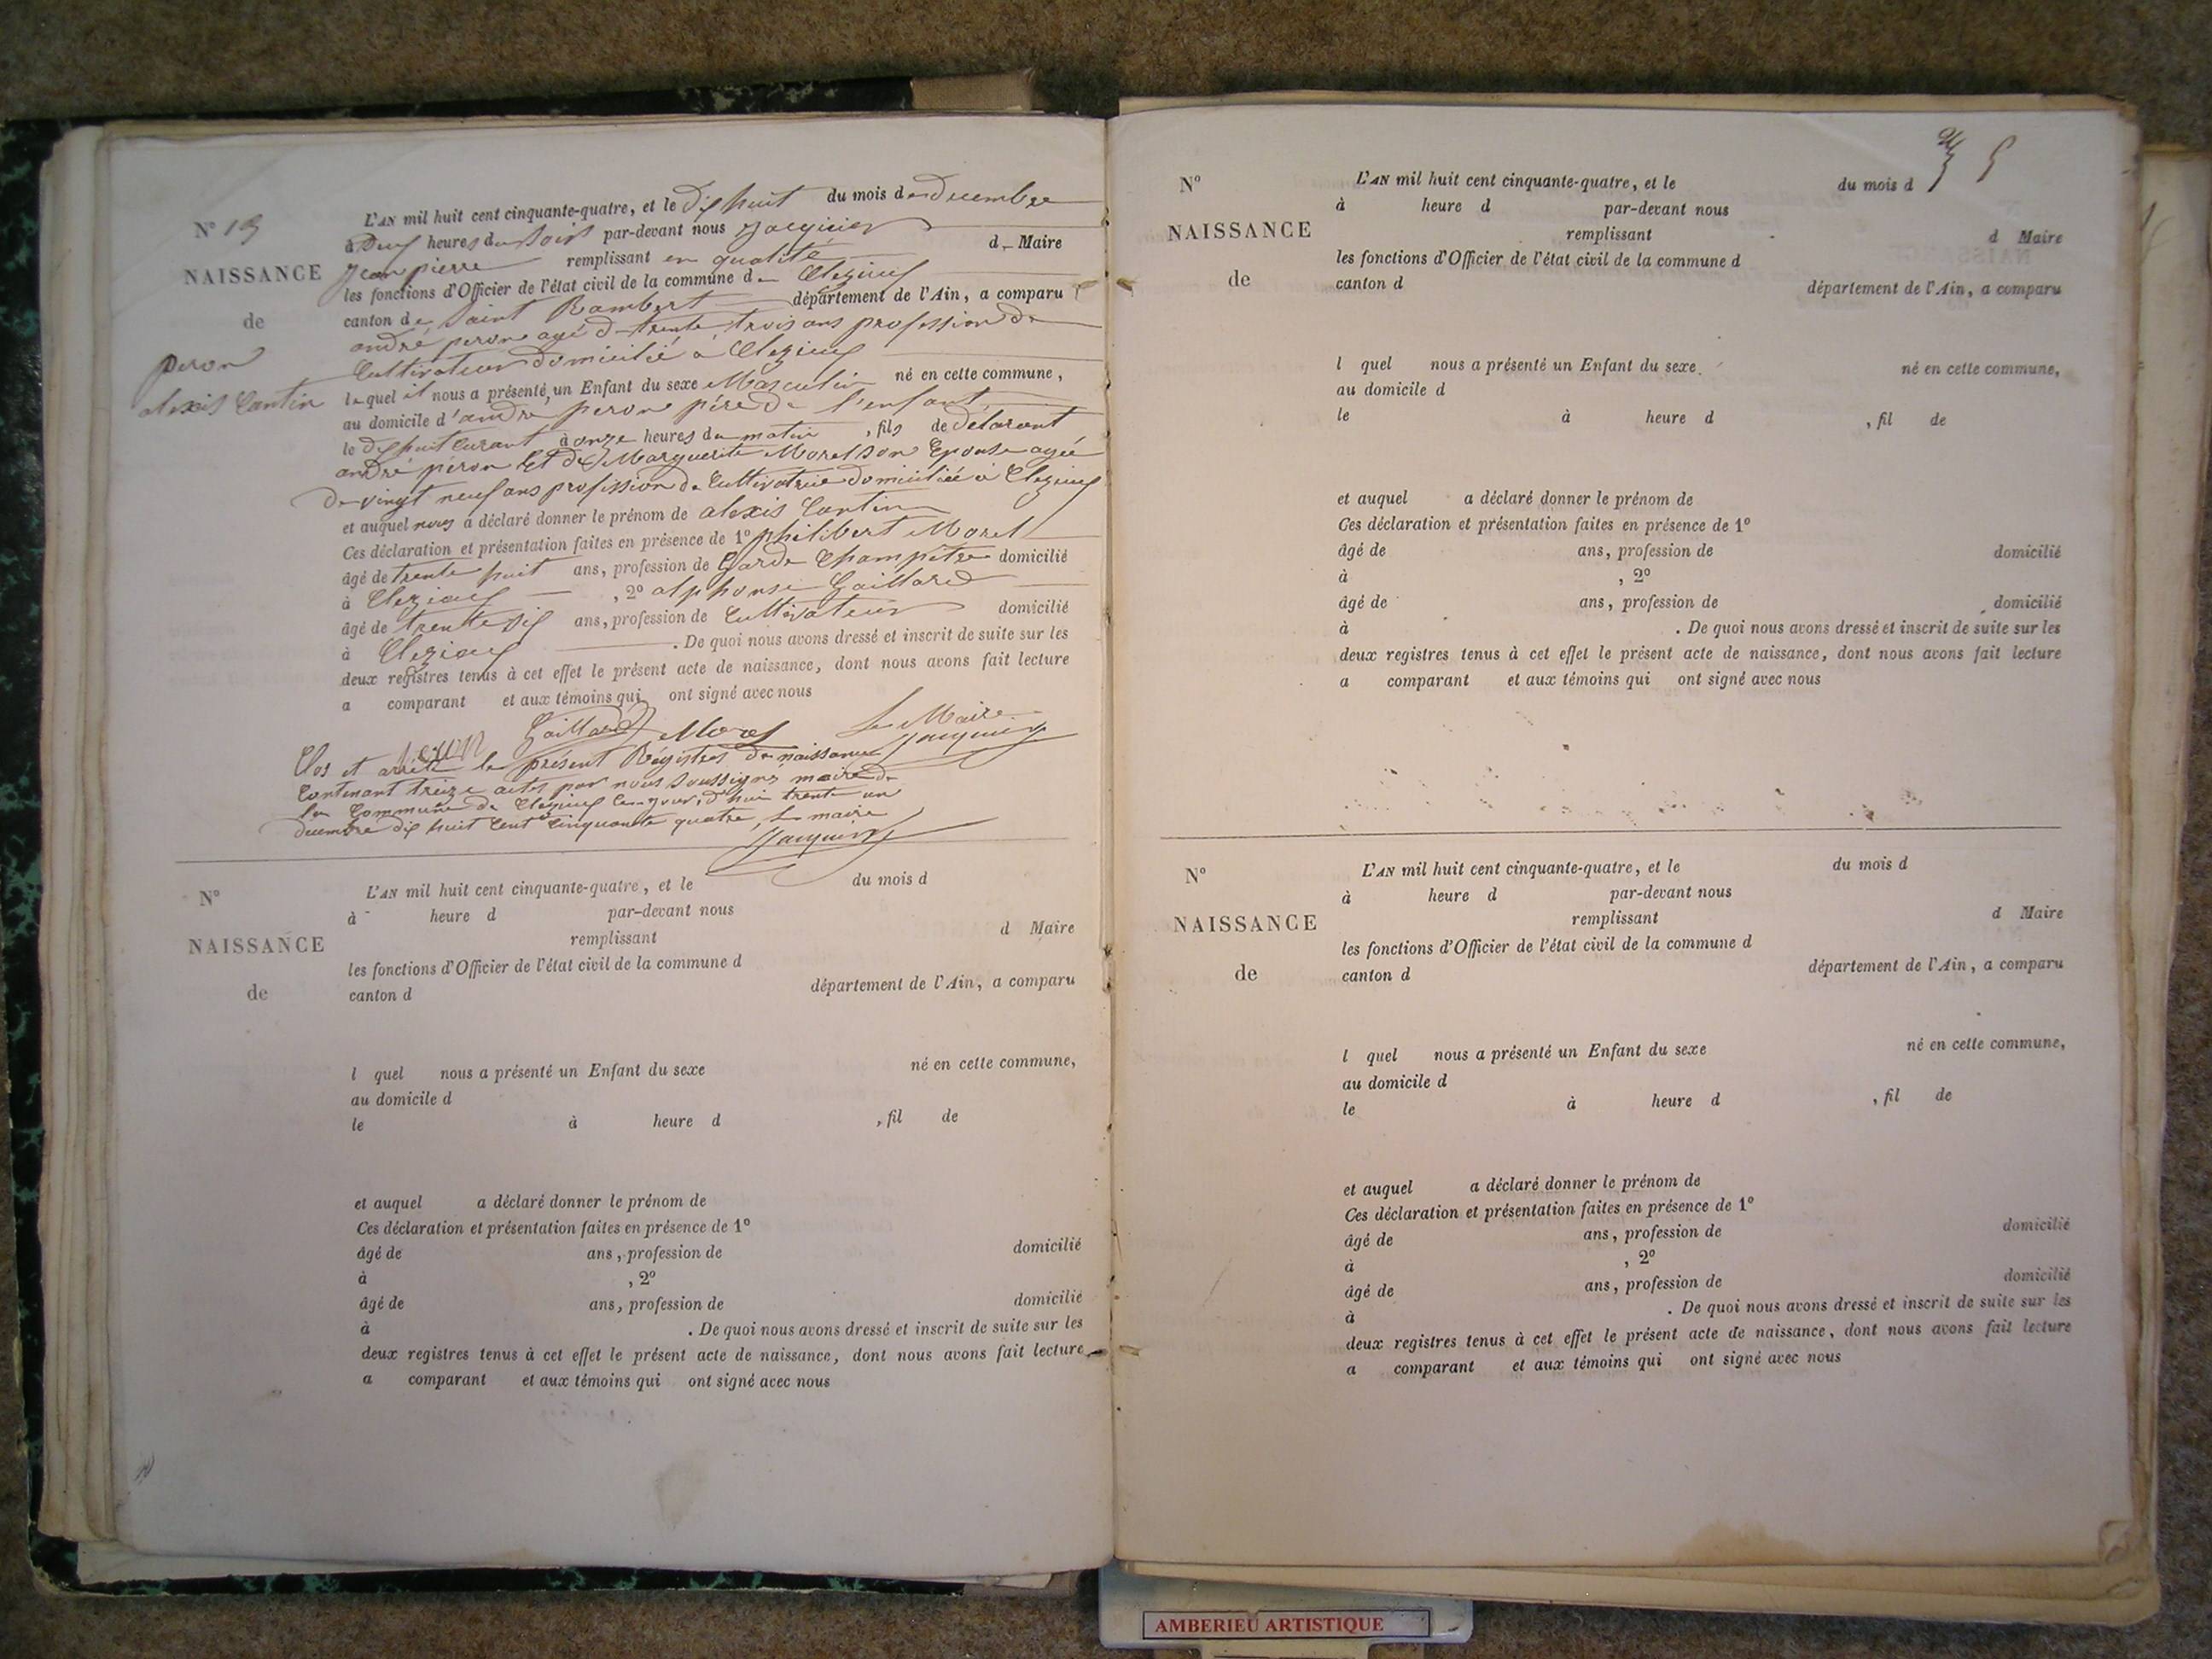 N° 13
NAISSANCE
de
peron
alexis Cantin
L'AN mil huit cent cinquante-quatre, et le dix huit du mois de decembre
à deux heures du soir par-devant nous Jacquier
Jean pierre remplissant en qualité de Maire
les fonctions d'Officier de l'état civil de la commune de Cleyzieux
canton de Saint Rambert département de l'Ain, a comparu
andré peron agé de trente trois ans profession de
Cultivateur domicilié à Clezieux
lequel il nous a présenté un Enfant du sexe Masculin né en cette commune,
au domicile d'andré peron père de l'enfant
le dix huit Curant à onze heures du matin , fils de délarant
andré péron Et de Marguerite Morel son Epouse agée
de vingt neuf ans profission de Cultivatrice domiciliée à Clezieux
et auquel nous a déclaré donner le prénom de alexis Cantin
Ces déclaration et présentation faites en présence de 1° philibert Morel
âgé de trente huit ans, profession de Garde Champêtre domicilié
à Clezieux , 2° alphonse Gaillard
âgé de trente six ans, profession de Cultivateur domicilié
à Clezieux . De quoi nous avons dressé et inscrit de suite sur les
deux registres tenus à cet effet le présent acte de naissance, dont nous avons fait lecture
a comparant et aux témoins qui ont signé avec nous
peron Gaillard Morel Le Maire
Jacquier
Clos et arrêté le présent Régistres de naissance
Contenant treize actes par nous soussignez maire de
la Commune de Clezieux Ce jour, d'hui trente un
decembre dix huit Cent Cinquante quatre, Le maire
Jacquier
N°
NAISSANCE
de
L'AN mil huit cent cinquante-quatre, et le du mois d
à heure d par-devant nous
remplissant d Maire
les fonctions d'Officier de l'état civil de la commune d
canton d département de l'Ain, a comparu
l quel nous a présenté un Enfant du sexe né en cette commune,
au domicile d
le à heure d , fil de
et auquel a déclaré donner le prénom de
Ces déclaration et présentation faites en présence de 1°
âgé de ans, profession de domicilié
à , 2°
âgé de ans, profession de domicilié
à . De quoi nous avons dressé et inscrit de suite sur les
deux registres tenus à cet effet le présent acte de naissance, dont nous avons fait lecture
a comparant et aux témoins qui ont signé avec nous
N°
NAISSANCE
de
L'AN mil huit cent cinquante-quatre, et le du mois d
à heure d par-devant nous
remplissant d Maire
les fonctions d'Officier de l'état civil de la commune d
canton d département de l'Ain, a comparu
l quel nous a présenté un Enfant du sexe né en cette commune,
au domicile d
le à heure d , fil de
et auquel a déclaré donner le prénom de
Ces déclaration et présentation faites en présence de 1°
âgé de ans, profession de domicilié
à , 2°
âgé de ans, profession de domicilié
à . De quoi nous avons dressé et inscrit de suite sur les
deux registres tenus à cet effet le présent acte de naissance, dont nous avons fait lecture
a comparant et aux témoins qui ont signé avec nous
N°
NAISSANCE
de
L'AN mil huit cent cinquante-quatre, et le du mois d
à heure d par-devant nous
remplissant d Maire
les fonctions d'Officier de l'état civil de la commune d
canton d département de l'Ain, a comparu
l quel nous a présenté un Enfant du sexe né en cette commune,
au domicile d
le à heure d , fil de
et auquel a déclaré donner le prénom de
Ces déclaration et présentation faites en présence de 1°
âgé de ans, profession de domicilié
à , 2°
âgé de ans, profession de domicilié
à . De quoi nous avons dressé et inscrit de suite sur les
deux registres tenus à cet effet le présent acte de naissance, dont nous avons fait lecture
a comparant et aux témoins qui ont signé avec nous
AMBERIEU ARTISTIQUE